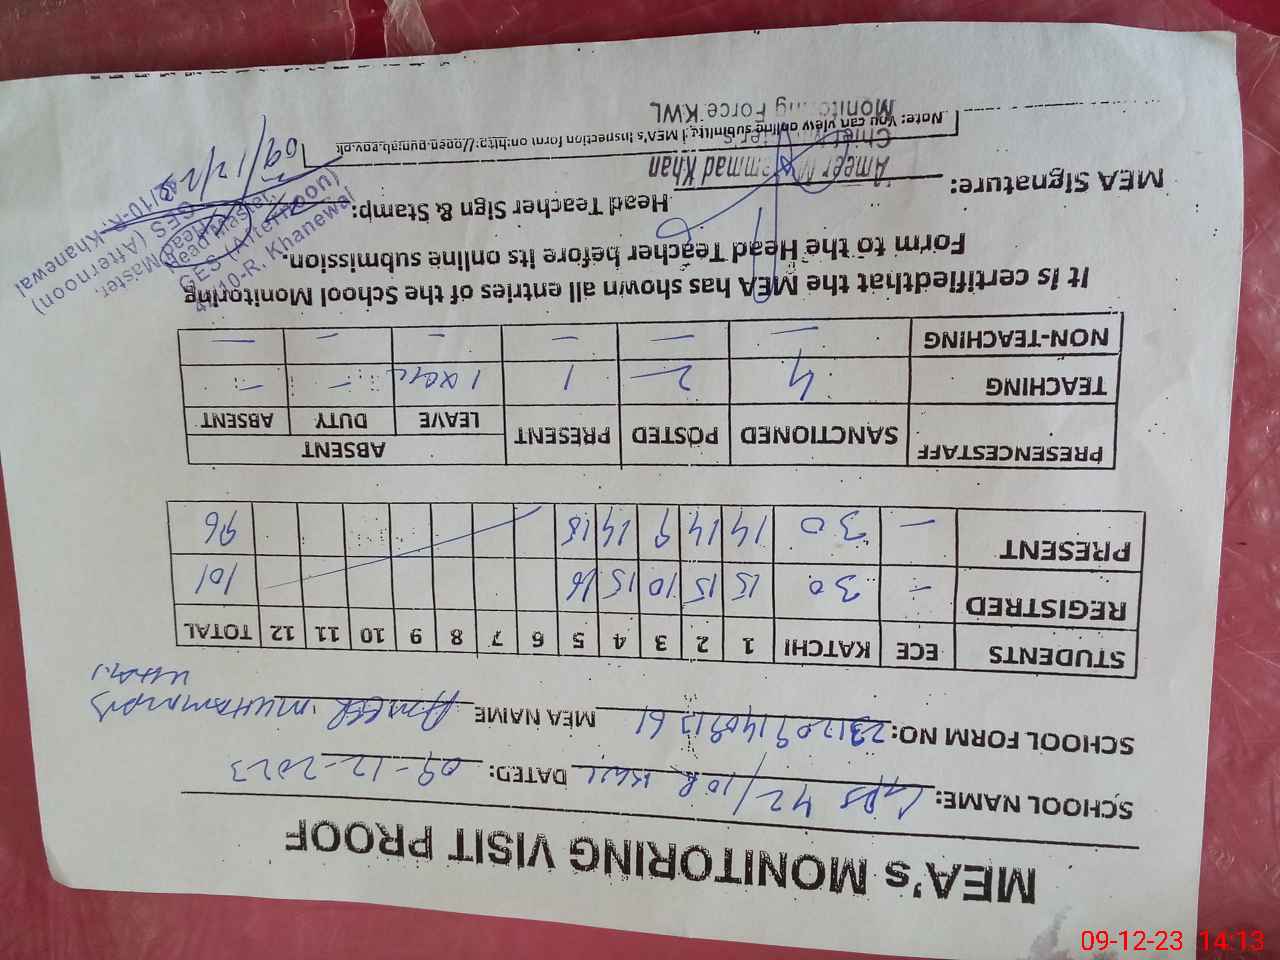 MEA's MONITORING VISIT PROOF
SCHOOL NAME: GPS 42/10R KWL DATED: 09-12-2023
SCHOOL FORM NO: MEA NAME AMEER MUHAMMAD
KHAN
STUDENTS ECE KATCHI 1 2 3 4 5 6 7 8 9 10 11 12 TOTAL
REGISTRED – 30 15 15 10 15 16 101
PRESENT – 30 14 14 9 14 15 96
PRESENCESTAFF SANCTIONED POSTED PRESENT ABSENT
LEAVE DUTY ABSENT
TEACHING 4 2 1 1 – –
NON-TEACHING – – – – – –
It is certifiedthat the MEA has shown all entries of the School Monitoring
Form to the Head Teacher before its online submission.
MEA Signature: Head Teacher Sign & Stamp:
Ameer Muhammad Khan
Monitoring Force KWL
Head Master,
GES (Afternoon)
/10-R. Khanewal
Head Master,
GES (Afternoon)
/10-R. Khanewal
09/12/23
Note: You can view online submitted MEA's inspection form on:http://open.punjab.gov.pk
09-12-23 14:13